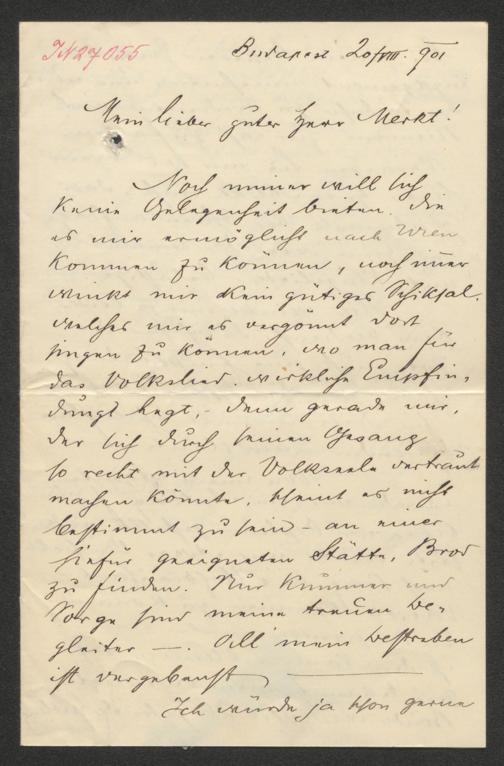 IN 27055
Budapest 20/VIII. 901
Mein lieber guter Herr Merkt!
Noch immer will sich
keine Gelegenheit bieten, die
es mir ermöglicht nach Wien
kommen zu können, noch im̅er
winkt mir kein gütiges Schiksal,
welches mir es vergönnt dort
singen zu können, wo man für
das Volkslied, wirkliche Empfin-
dung hegt, - denn gerade mir,
der sich durch seinen Gesang
so recht mit der Volksseele vertraut
machen könnte, scheint es nicht
bestimmt zu sein - an einer
hiefür geeigneten Stätte, Brod
zu finden. Nur Kummer und
Sorge sind meine treuen Be-
gleiter —. All mein bestreben
ist vergebens
Ich würde ja schon gerne